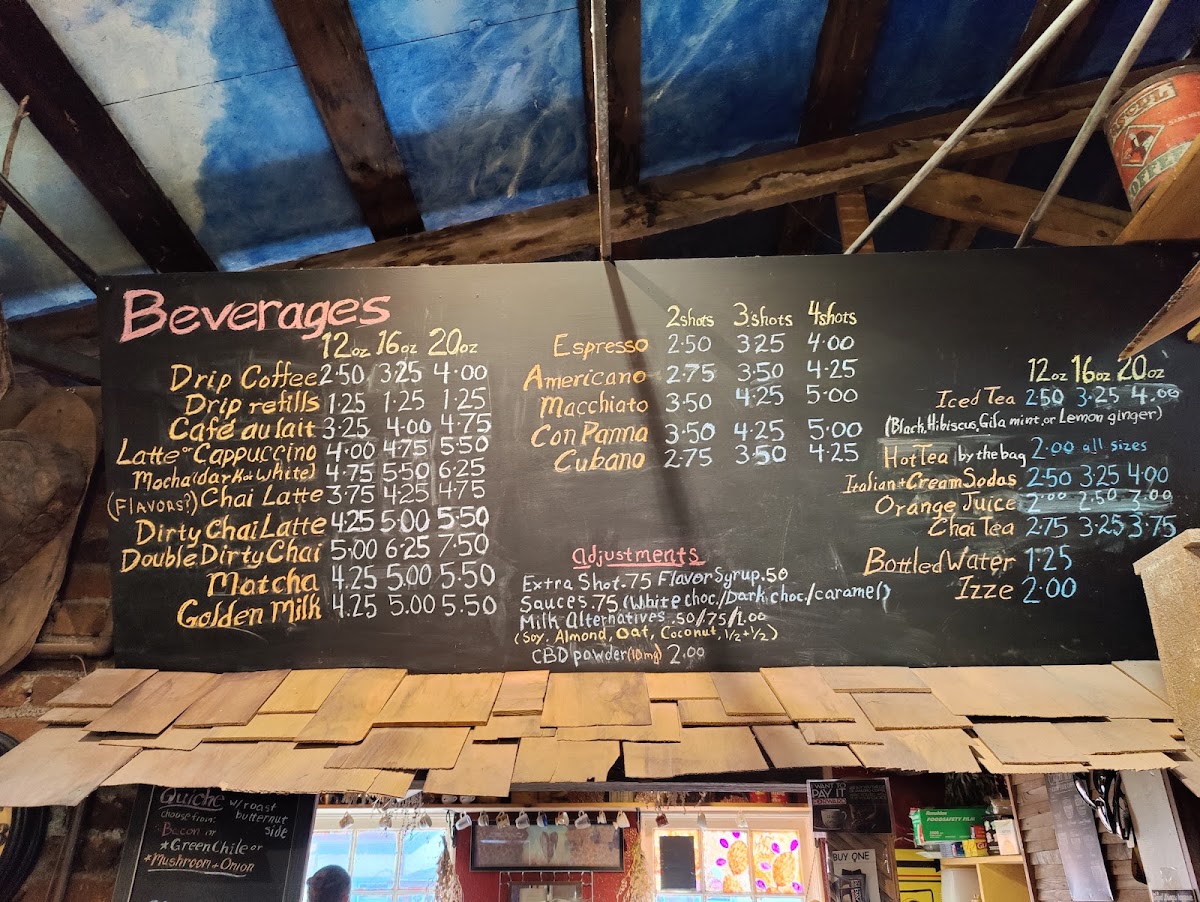 Beverages
12oz 16oz 20oz
Drip Coffee 2.50 3.25 4.00
Drip refills 1.25 1.25 1.25
Café au lait 3.25 4.00 4.75
Latte or Cappuccino 4.00 4.75 5.50
Mocha (dark or White) 4.75 5.50 6.25
(Flavors?) Chai Latte 3.75 4.25 4.75
Dirty Chai Latte 4.25 5.00 5.50
Double Dirty Chai 5.00 6.25 7.50
Matcha 4.25 5.00 5.50
Golden Milk 4.25 5.00 5.50
2shots 3shots 4shots
Espresso 2.50 3.25 4.00
Americano 2.75 3.50 4.25
Macchiato 3.50 4.25 5.00
Con Panna 3.50 4.25 5.00
Cubano 2.75 3.50 4.25
adjustments
Extra Shot .75 Flavor Syrup .50
Sauces .75 (White choc./Dark choc./caramel)
Milk Alternatives .50/.75/1.00
(Soy, Almond, Oat, Coconut, 1/2+1/2)
CBD powder (10mg) 2.00
12oz 16oz 20oz
Iced Tea 2.50 3.25 4.00
(Black, Hibiscus, Gila mint, or Lemon ginger)
Hot Tea by the bag 2.00 all sizes
Italian + Cream Sodas 2.50 3.25 4.00
Orange Juice 2.00 2.50 3.00
Chai Tea 2.75 3.25 3.75
Bottled Water 1.25
Izze 2.00
Quiche w/ roast
choose from: butternut
Bacon or side
*Green Chile or
*Mushroom + Onion
I WANT TO
PAY IT
BUY ONE
FOODSAFETY FILM